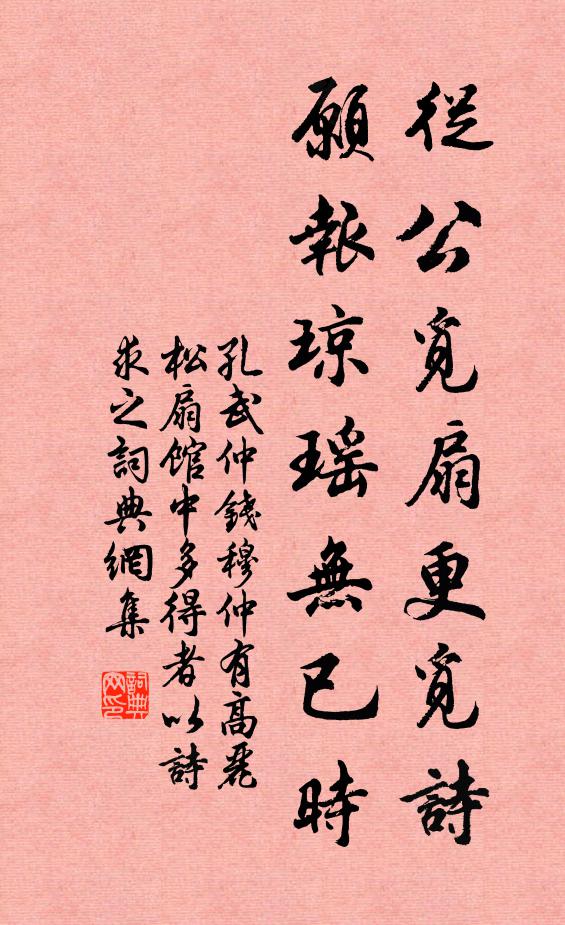 從公覓扇更覓詩
願報琼瑶無已時
孔武仲錢穆仲有高麗
松扇館中多得者以詩
求之詞典網集
詞典
网印